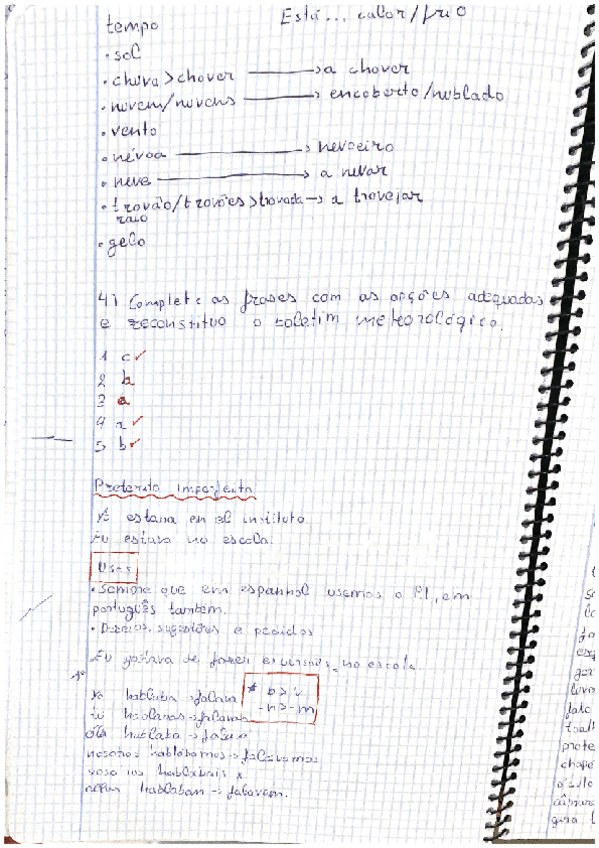 tempo Está... calor/frio
• sol
• chuva > chover → a chover
• nuvem/nuvens → encoberto/nublado
• vento
• névoa → nevoeiro
• neve → a nevar
• trovão/trovões > trovoada → a trovejar
raio
• gelo
4) Complete as frases com as opções adequadas
e reconstitua o boletim meteorológico.
1 c ✓
2 b
3 a
4 a ✓
5 b ✓
Preterito Imperfeito
Yo estaba en el instituto
Eu estava na escola.
Usos
• Sempre que em espanhol usemos o PI, em
português também.
• Desejos, sugestões e pedidos
Eu gostava de fazer na escola.
yo hablaba → falava * b > v
tú hablabas → falavas -n > -m
hablaba → falava
nosotros hablábamos → falávamos
vosotros hablabais x
hablaban → falavam.